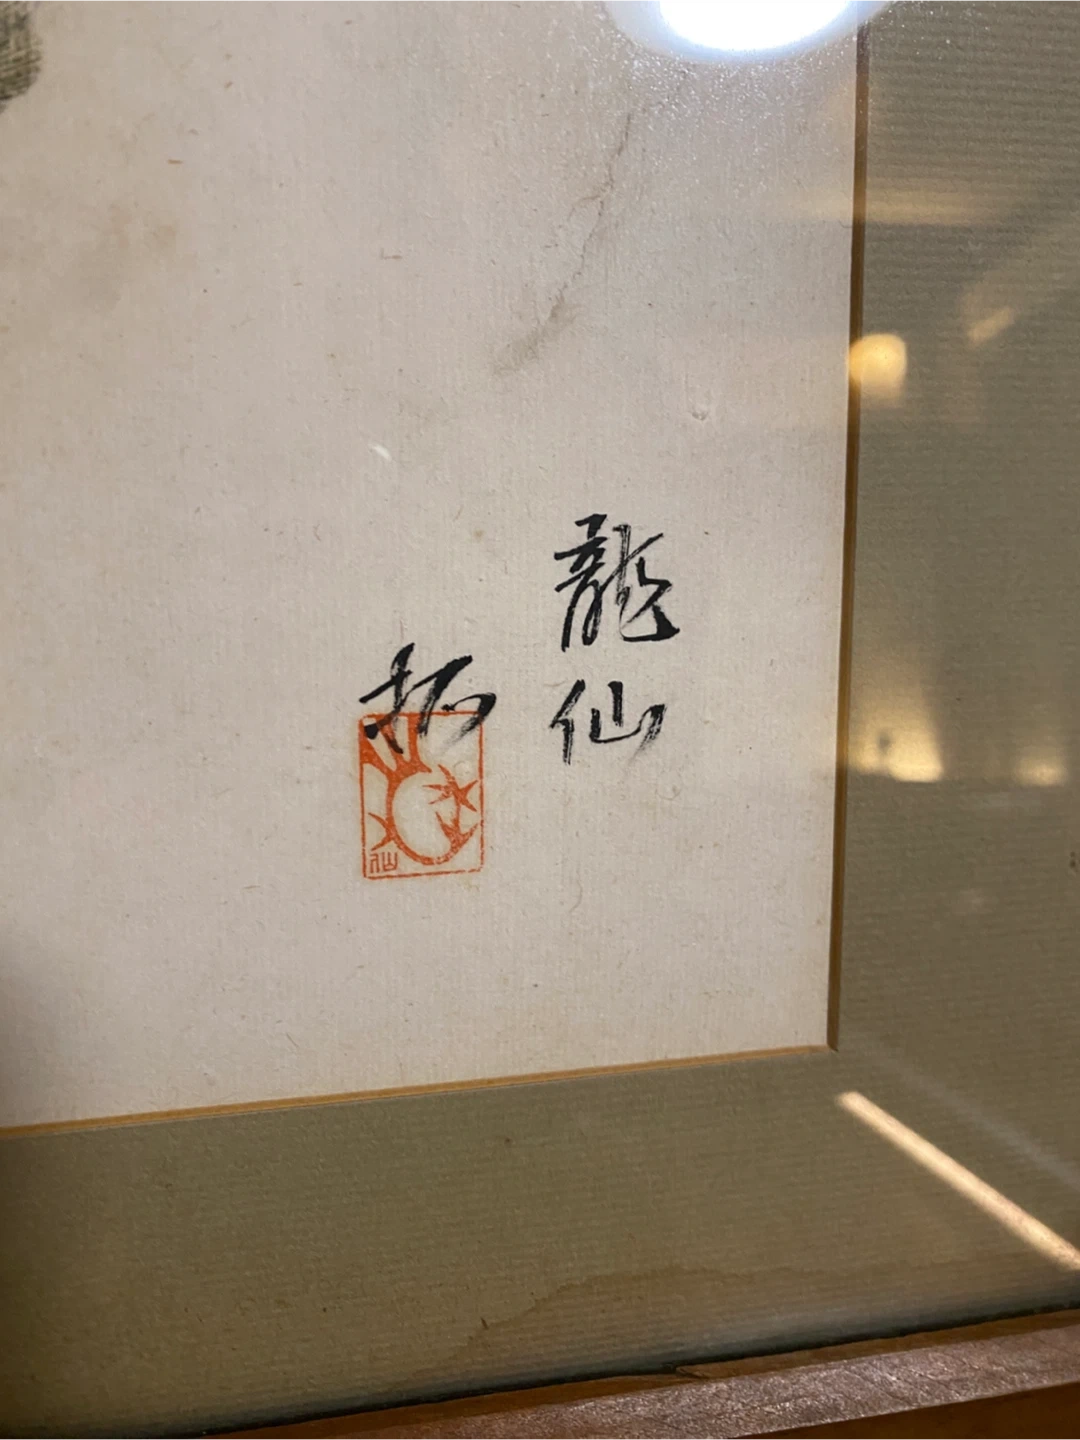 龍仙
拓
仙